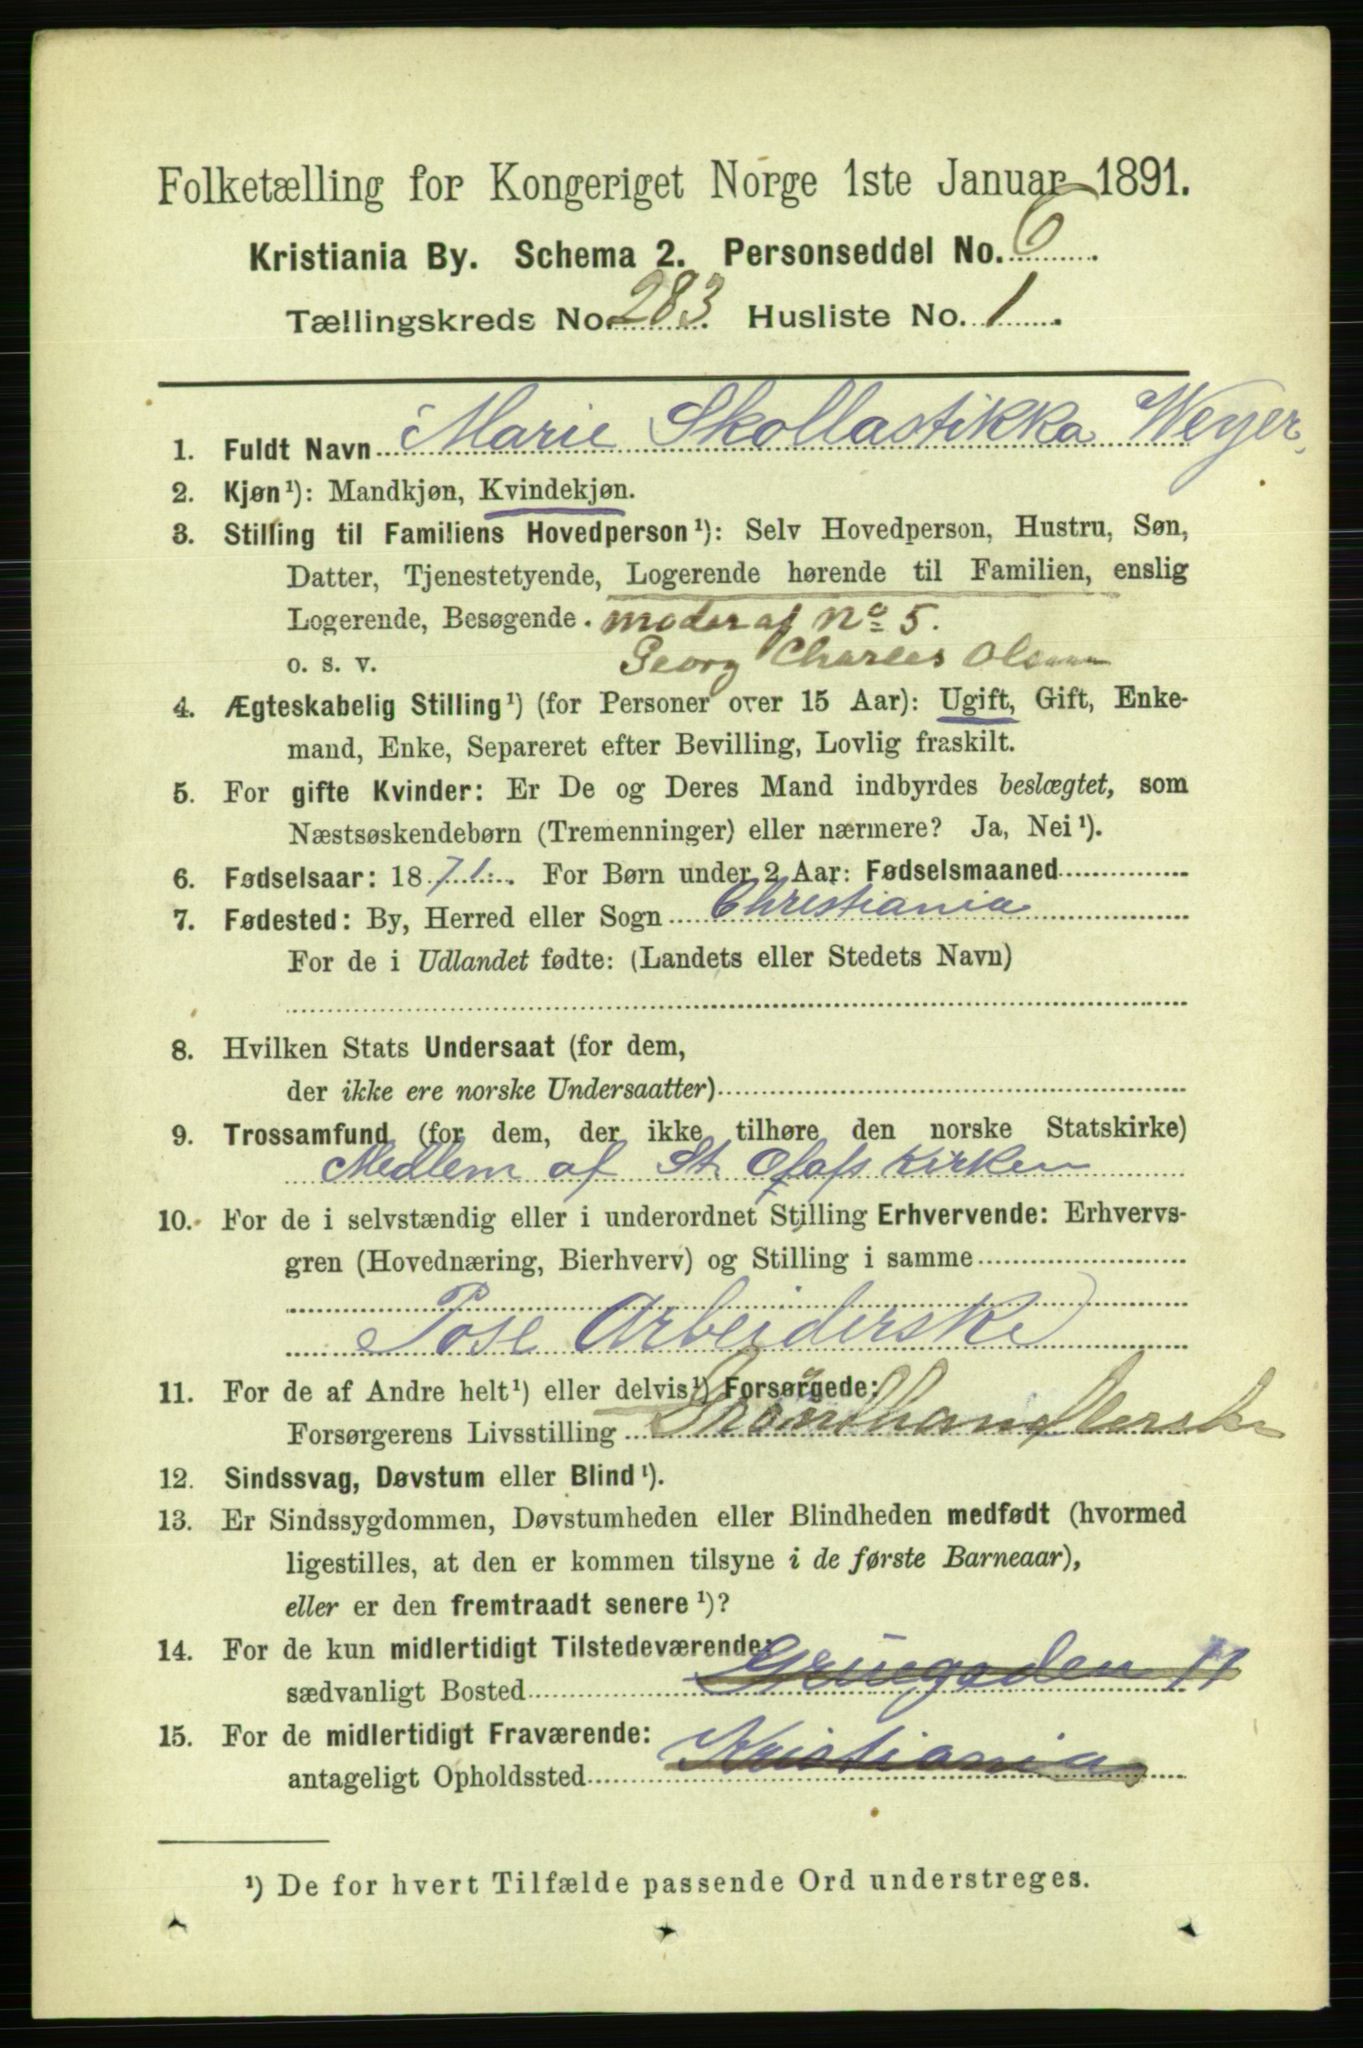 Folketælling for Kongeriget Norge 1ste Januar 1891.
Kristiania By. Schema 2. Personseddel No. 6
Tællingskreds No. 283. Husliste No. 1.
1. Fuldt Navn Marie Skollastikka Weyer.
2. Kjøn¹): Mandkjøn, Kvindekjøn.
3. Stilling til Familiens Hovedperson¹): Selv Hovedperson, Hustru, Søn,
Datter, Tjenestetyende, Logerende hørende til Familien, enslig
Logerende, Besøgende. moder af No 5.
o. s. v. Georg Charles Olsen
4. Ægteskabelig Stilling¹) (for Personer over 15 Aar): Ugift, Gift, Enke-
mand, Enke, Separeret efter Bevilling, Lovlig fraskilt.
5. For gifte Kvinder: Er De og Deres Mand indbyrdes beslægtet, som
Næstsøskendebørn (Tremenninger) eller nærmere? Ja, Nei¹).
6. Fødselsaar: 1871. For Børn under 2 Aar: Fødselsmaaned
7. Fødested: By, Herred eller Sogn Christiania
For de i Udlandet fødte: (Landets eller Stedets Navn)
8. Hvilken Stats Undersaat (for dem,
der ikke ere norske Undersaatter)
9. Trossamfund (for dem, der ikke tilhøre den norske Statskirke)
Medlem af St Olafs kirken
10. For de i selvstændig eller i underordnet Stilling Erhvervende: Erhvervs-
gren (Hovednæring, Bierhverv) og Stilling i samme
Pose Arbeiderske
11. For de af Andre helt¹) eller delvis¹) Forsørgede:
Forsørgerens Livsstilling Grønthandlerske
12. Sindssvag, Døvstum eller Blind¹).
13. Er Sindssygdommen, Døvstumheden eller Blindheden medfødt (hvormed
ligestilles, at den er kommen tilsyne i de første Barneaar),
eller er den fremtraadt senere¹)?
14. For de kun midlertidigt Tilstedeværende:
sædvanligt Bosted 11
15. For de midlertidigt Fraværende:
antageligt Opholdssted Kristiania
¹) De for hvert Tilfælde passende Ord understreges.